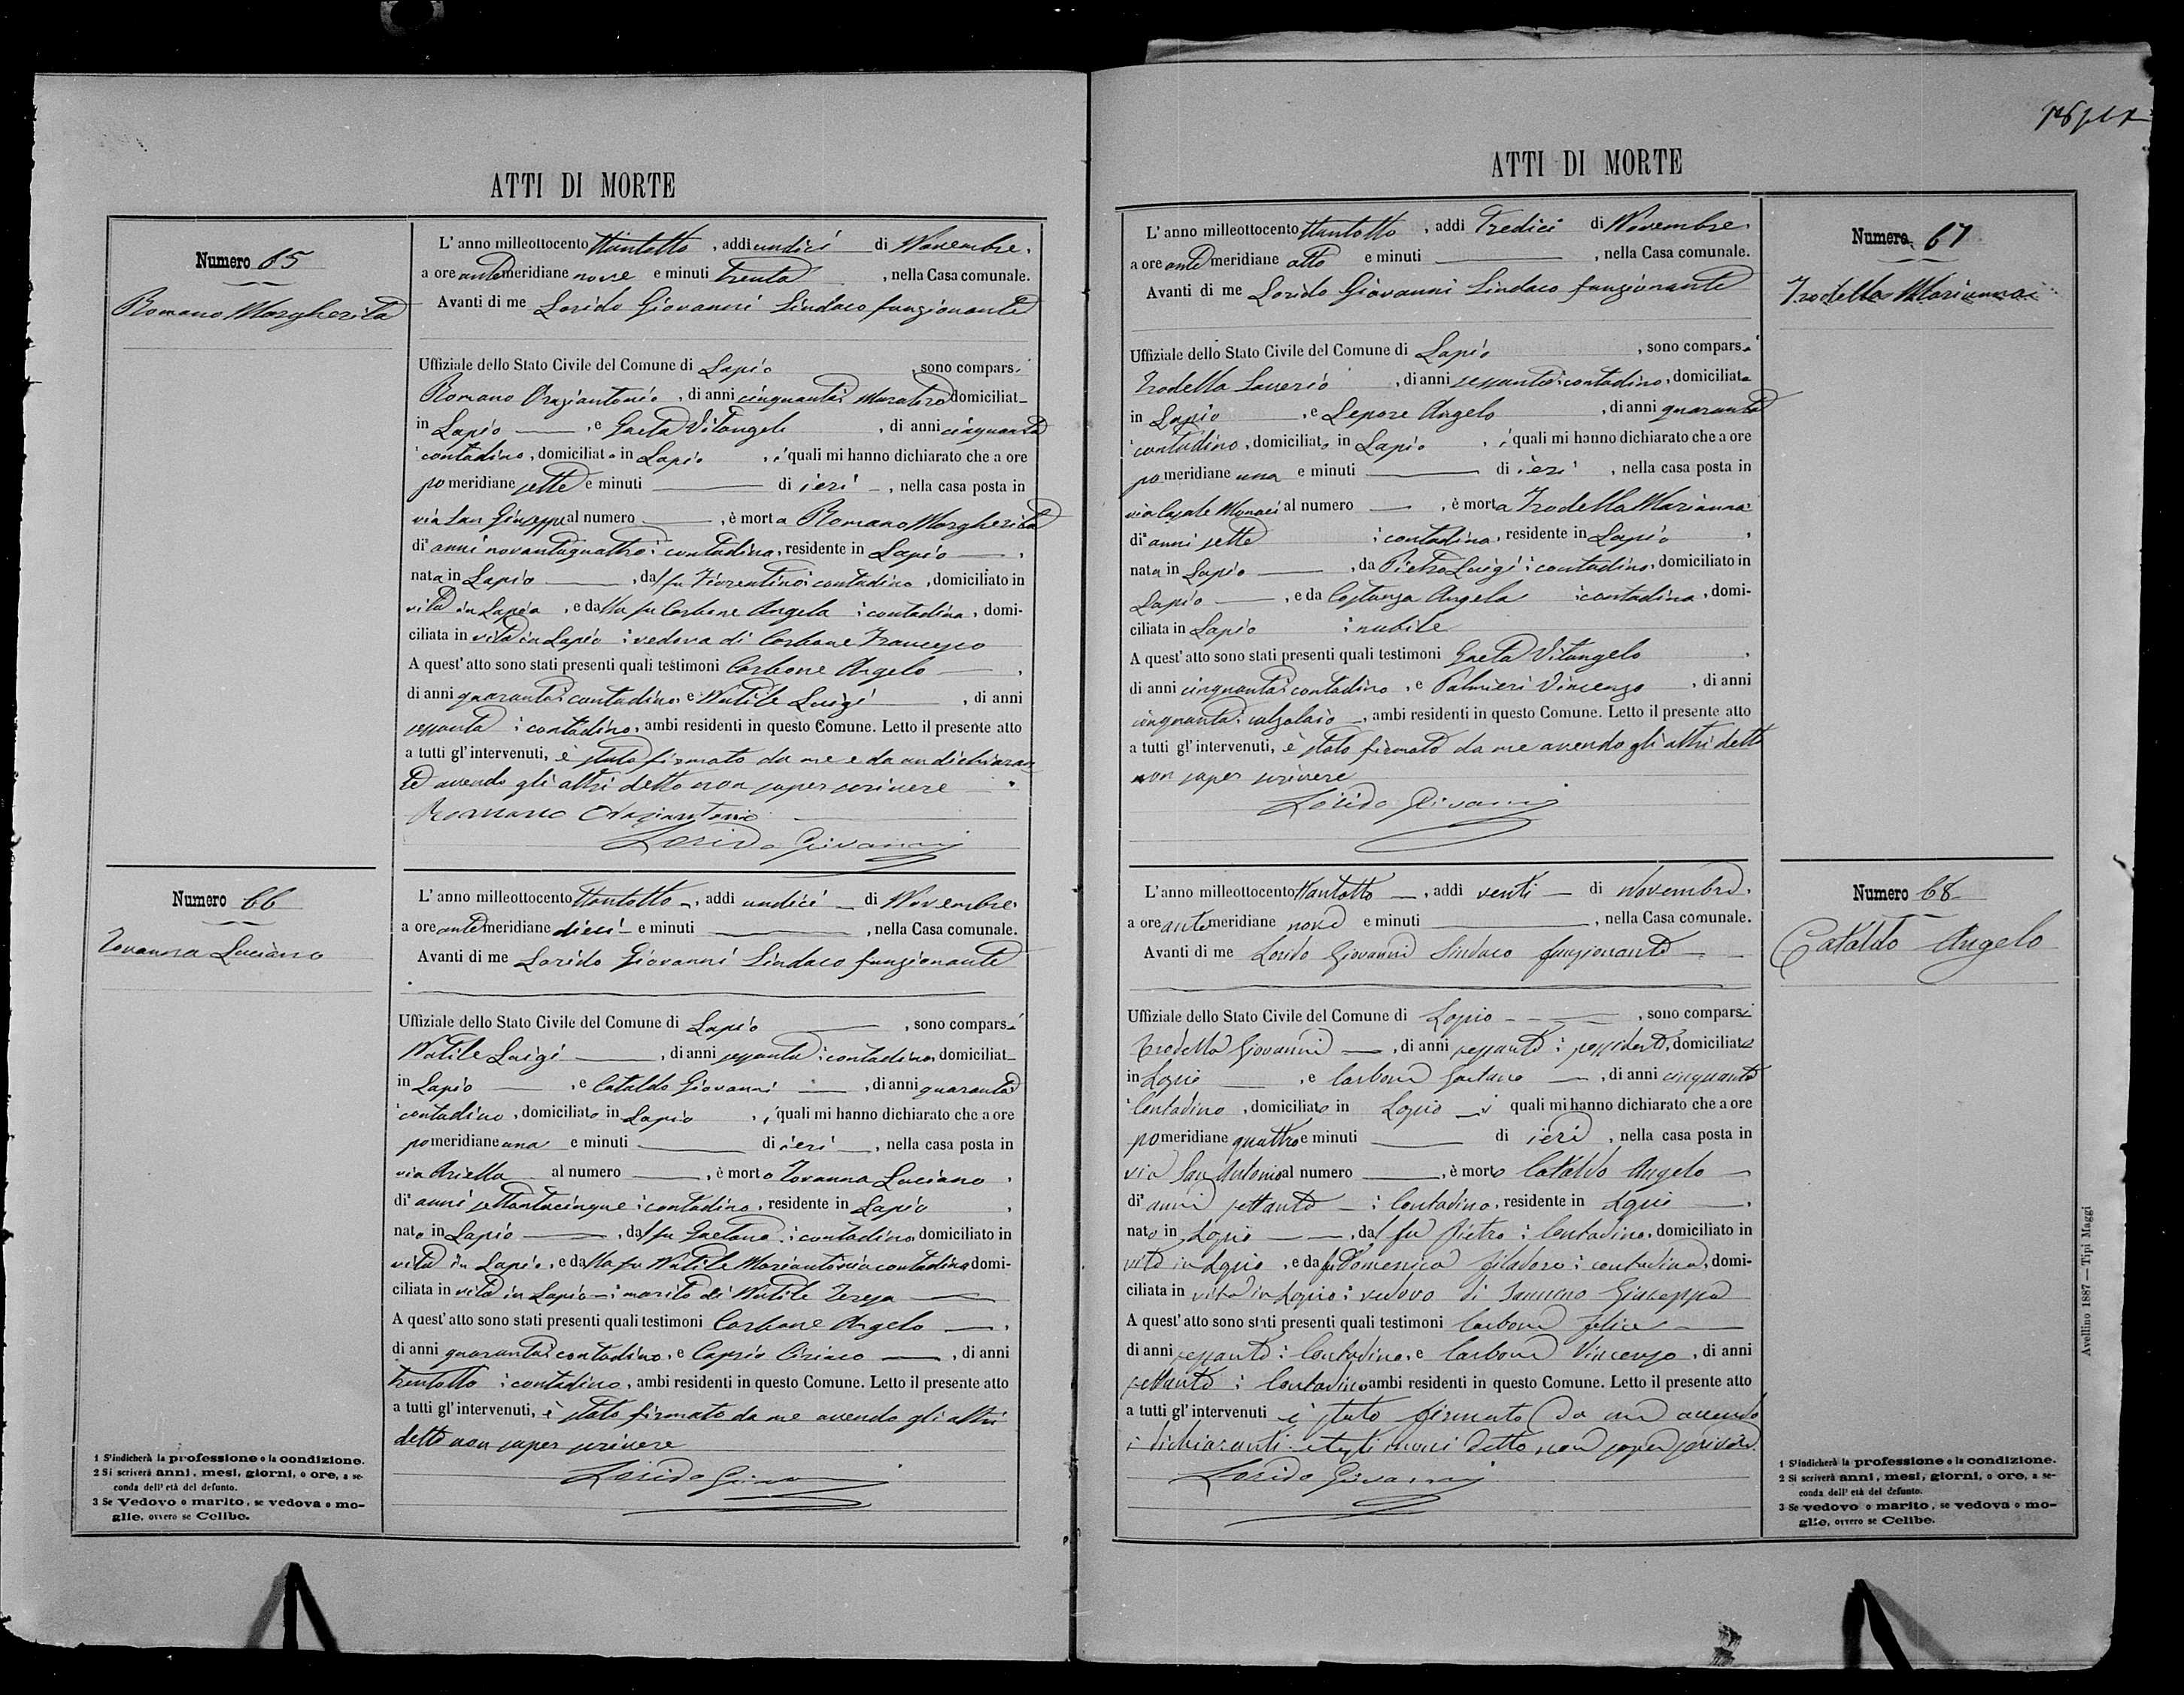 ATTI DI MORTE
Numero 65
Romano Margherita
L' anno milleottocento ttantotto , addi undici di Novembre,
a ore antemeridiane nove e minuti trenta , nella Casa comunale.
Avanti di me Lorido Giovanni Sindaco funzionante
Uffiziale dello Stato Civile del Comune di Lapio , sono compars i
Romano Oraziantonio , di anni cinquanta: muratore domiciliat_
in Lapio , e Gaeta Vitangelo , di anni cinquanta
: contadino , domiciliato in Lapio , i quali mi hanno dichiarato che a ore
pomeridiane sette e minuti — di ieri , nella casa posta in
via San Giuseppe al numero — , è morta Romano Margherita
di anni novantaquattro : contadina, residente in Lapio ,
nata in Lapio , dal fu Fiorentino: contadino , domiciliato in
vita in Lapio , e dalla fu Carbone Angela : contadina , domi-
ciliata in vita in Lapio : vedova di Carbone Francesco
A quest' atto sono stati presenti quali testimoni Carbone Angelo ,
di anni quaranta: contadino, e Natile Luigi , di anni
sessanta : contadino, ambi residenti in questo Comune. Letto il presente atto
a tutti gl' intervenuti, è stato firmato da me e da un dichiaran
te avendo gli altri detto non saper scrivere
Romano Oraziantonio
Lorido Giovanni
Numero 66
Iovanna Luciano
L' anno milleottocento ttantotto , addi undici di Novembre
a ore antemeridiane dieci e minuti — , nella Casa comunale.
Avanti di me Lorido Giovanni Sindaco funzionante
Uffiziale dello Stato Civile del Comune di Lapio , sono compars i
Natile Luigi , di anni sessanta : contadino domiciliat_
in Lapio , e Cataldo Giovanni , di anni quaranta
: contadino , domiciliato in Lapio , i quali mi hanno dichiarato che a ore
pomeridiane una e minuti — di ieri , nella casa posta in
via Ariella al numero — , è morto Iovanna Luciano ,
di anni settantacinque : contadino, residente in Lapio ,
nato in Lapio , dal fu Gaetano : contadino domiciliato in
vita in Lapio , e dalla fu Natile Mariantonia contadina domi-
ciliata in vita in Lapio : marito di Natile Teresa
A quest' atto sono stati presenti quali testimoni Carbone Angelo ,
di anni quaranta: contadino, e Caprio Ciriaco , di anni
trentotto : contadino, ambi residenti in questo Comune. Letto il presente atto
a tutti gl' intervenuti, è stato firmato da me avendo gli altri
detto non saper scrivere
Lorido Giovanni
1 S'indicherà la professione o la condizione.
2 Si scriverà anni, mesi, giorni, o ore, a se-
conda dell' età del defunto.
3 Se Vedovo o marito, se vedova o mo-
glie, ovvero se Celibe.
ATTI DI MORTE
L' anno milleottocento ttantotto , addi Tredici di Novembre
a ore antemeridiane otto e minuti — , nella Casa comunale.
Avanti di me Lorido Giovanni Sindaco funzionante
Uffiziale dello Stato Civile del Comune di Lapio , sono compars i
Trodella Saverio , di anni sessanta: contadino, domiciliato
in Lapio , e Lepore Angelo , di anni quaranta
: contadino, domiciliato in Lapio , i quali mi hanno dichiarato che a ore
pomeridiane una e minuti — di ieri , nella casa posta in
via Casale Monaci al numero — , è morta Trodella Marianna
di anni sette : contadina, residente in Lapio ,
nata in Lapio , da Pietro Luigi : contadino, domiciliato in
Lapio , e da Costanza Angela : contadina , domi-
ciliata in Lapio : nubile
A quest' atto sono stati presenti quali testimoni Gaeta Vitangelo ,
di anni cinquanta: contadino , e Palmieri Vincenzo , di anni
cinquanta: calzolaio , ambi residenti in questo Comune. Letto il presente atto
a tutti gl' intervenuti, è stato firmato da me avendo gli altri detto
non saper scrivere
Lorido Giovanni
Numero 67
Trodella Marianna
L' anno milleottocento ttantotto , addi venti di Novembre,
a ore antemeridiane nove e minuti — , nella Casa comunale.
Avanti di me Lorido Giovanni Sindaco funzionante
Uffiziale dello Stato Civile del Comune di Lapio , sono compars i
Trodella Giovanni , di anni sessanta : possidente, domiciliato
in Lapio , e Carbone Gaetano , di anni cinquanta
: Contadino , domiciliato in Lapio i quali mi hanno dichiarato che a ore
pomeridiane quattro e minuti — di ieri , nella casa posta in
via San Antonio al numero — , è morto Cataldo Angelo
di anni settanta : Contadino, residente in Lapio ,
nato in Lapio , dal fu Pietro : Contadino, domiciliato in
vita in Lapio , e da fu Domenica Filadoro : contadina, domi-
ciliata in vita in Lapio : vedovo di Giuseppa
A quest' atto sono stati presenti quali testimoni Carbone Felice
di anni sessanta : Contadino, e Carbone Vincenzo , di anni
settanta : Contadino ambi residenti in questo Comune. Letto il presente atto
a tutti gl' intervenuti è stato firmato da me avendo
i dichiaranti e testimoni detto non saper scrivere.
Lorido Giovanni
Numero 68
Cataldo Angelo
1 S'indicherà la professione o la condizione.
2 Si scriverà anni, mesi, giorni, o ore, a se-
conda dell' età del defunto.
3 Se vedovo o marito, se vedova o mo-
glie, ovvero se Celibe.
Avellino 1887 — Tipi Maggi